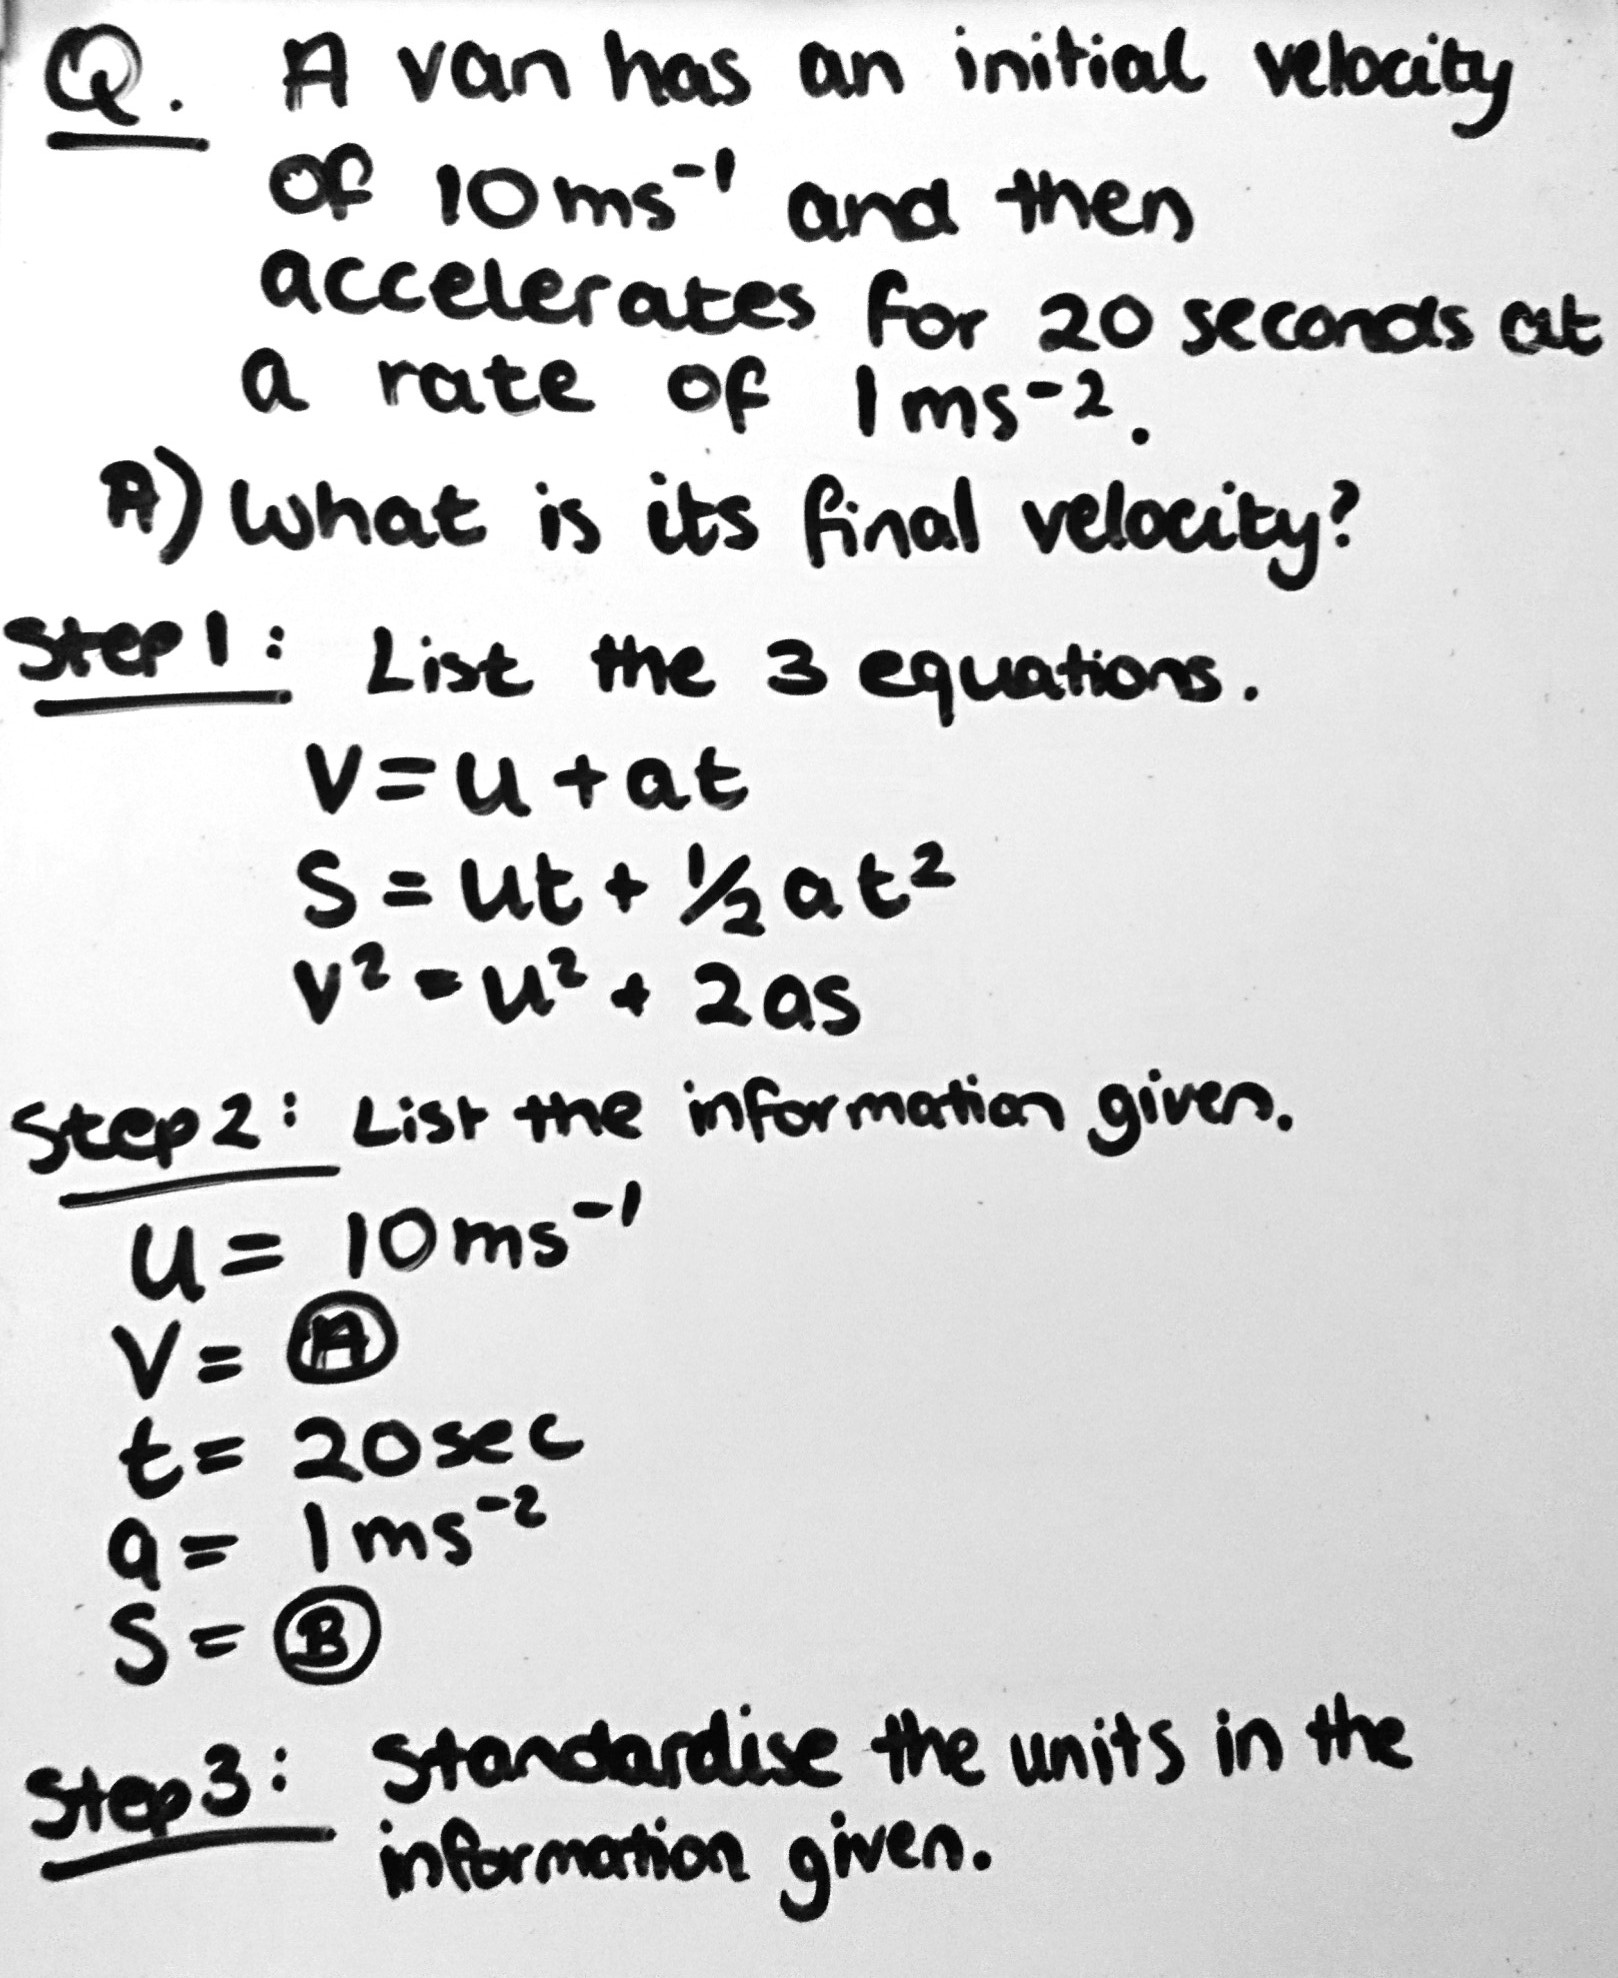 Q. A van has an initial velocity
of 10ms⁻¹ and then
accelerates for 20 seconds at
a rate of 1ms⁻².
A) What is its final velocity?
Step 1: List the 3 equations.
V=u+at
S=ut+½at²
v²=u²+2as
Step 2: List the information given.
u= 10ms⁻¹
V= Ⓐ
t= 20sec
a= 1ms⁻²
S= Ⓑ
Step 3: Standardise the units in the
information given.